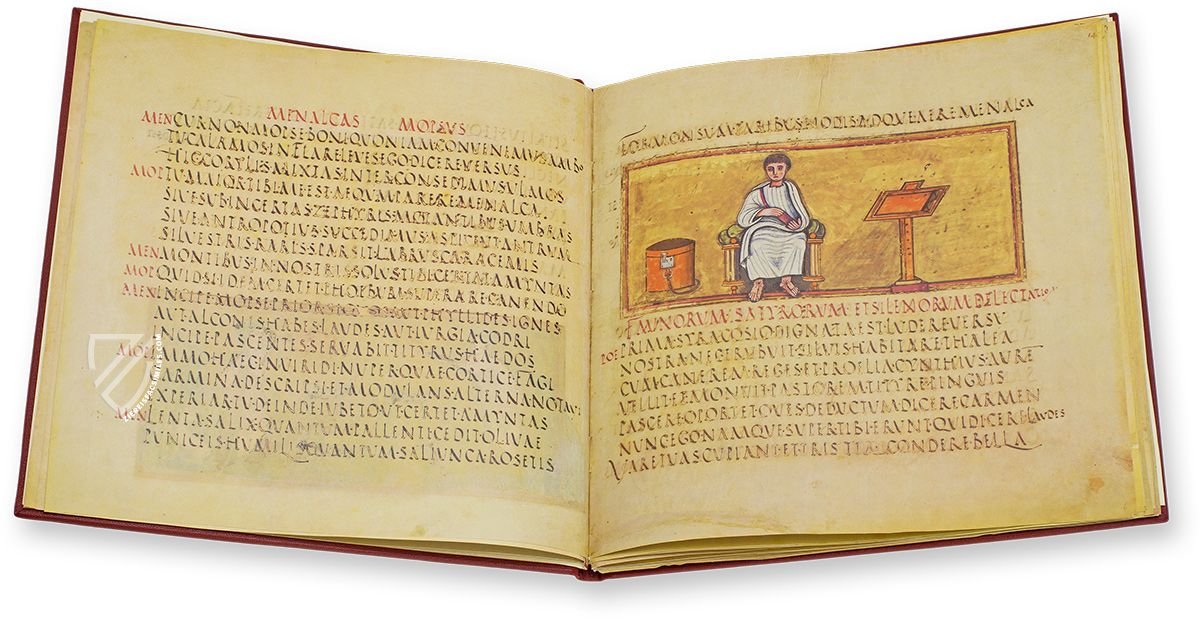 MENALCAS MOPSUS
MEN CVRNONMOPSEBONIQVONIAMCONVENIMVSAMBO
TVCALAMOSINFLARELEVESEGODICEREVERSVS
HICCORYLISMIXTASINTERCONSEDIMVSVLMOS
MOP TVMAIORTIBIMEESTAEQVMPAREREMENALCA
SIVESVBINCERTASZEPHYRISMOTANTIBVSVMBRAS
SIVEANTROPOTIVSSVCCEDIMVSASPICEVTANTRVM
SILVESTRISRARISSPARSITLABRVSCARACEMIS
MEN MONTIBVSINNOSTRISSOLVSTIBICERTATAMYNTAS
MOP QVIDSIIDEMCERTETPHOEBVMSVPERARECANENDO
MEN INCIPEMOPSEPRIORSIQVOSAVTPHYLLIDISIGNES
AVTALCONISHABESLAVDESAVTIVRGIACODRI
INCIPEPASCENTESSERVABITTITYRVSHAEDOS
MOP IMMOHAECINVIRIDINVPERQVAECORTICEFAGI
CARMINADESCRIPSIETMODVLANSALTERNANOTAVI
EXPERIARTVDEINDEIVBETOVTCERTETAMYNTAS
MEN LENTASALIXQVANTVMPALLENTICEDITOLIVAE
PVNICEISHVMILISQVANTVMSALIVNCAROSETIS
FACSIMILEFINDER.COM
FORMONSVMPARIBVSNODISATQVEAEREMENALCA
FAVNORVM·SATYRORVM·ETSILENORVMDELECTATIO
POE PRIMASYRACOSIODIGNATAESTLVDEREVERSV
NOSTRANECERVBVITSILVISHABITARETHALEA
CVMCANEREMREGESETPROELIACYNTHIVSAVRE
VELLITETADMONVITPASTOREMTITYREPINGVIS
PASCEREOPORTETOVESDEDVCTVMDICERECARMEN
NVNCEGONAMQVESVPERTIBIERVNTQVIDICERELAVDES
VARETVASCVPIANTETTRISTIACONDEREBELLA